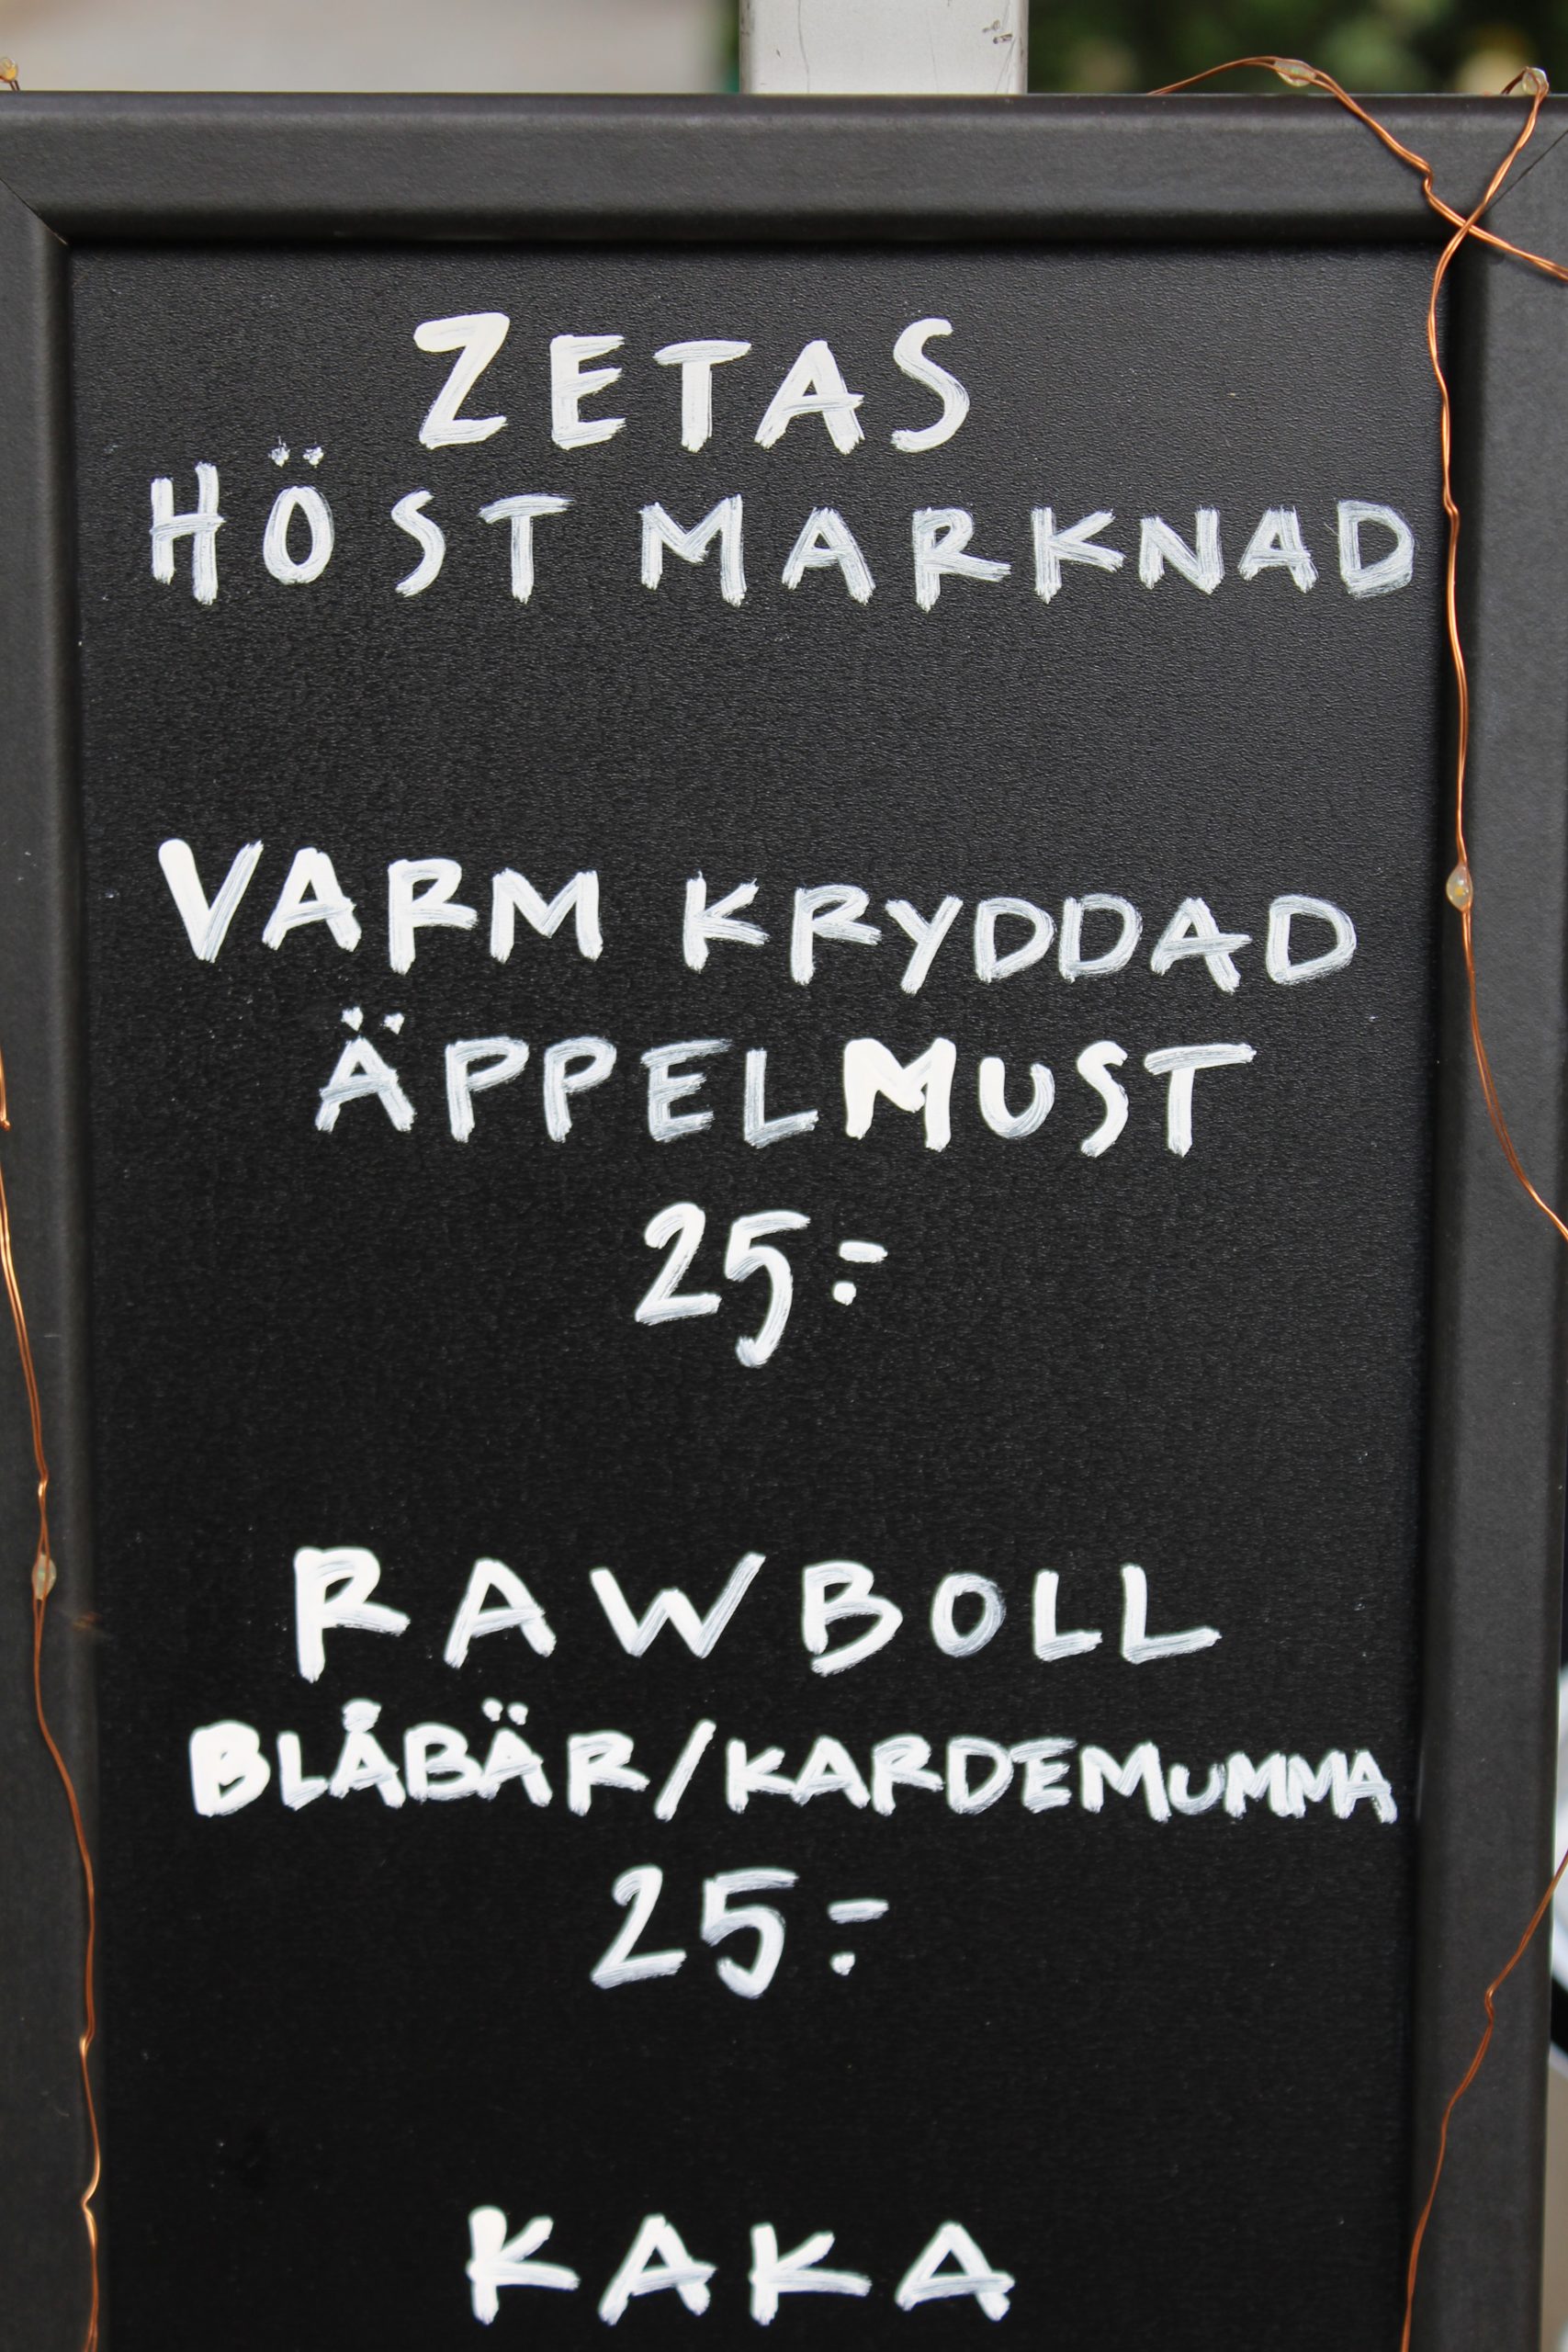 ZETAS
HÖST MARKNAD
VARM KRYDDAD
ÄPPELMUST
25:-
RAWBOLL
BLÅBÄR/KARDEMUMMA
25:-
KAKA